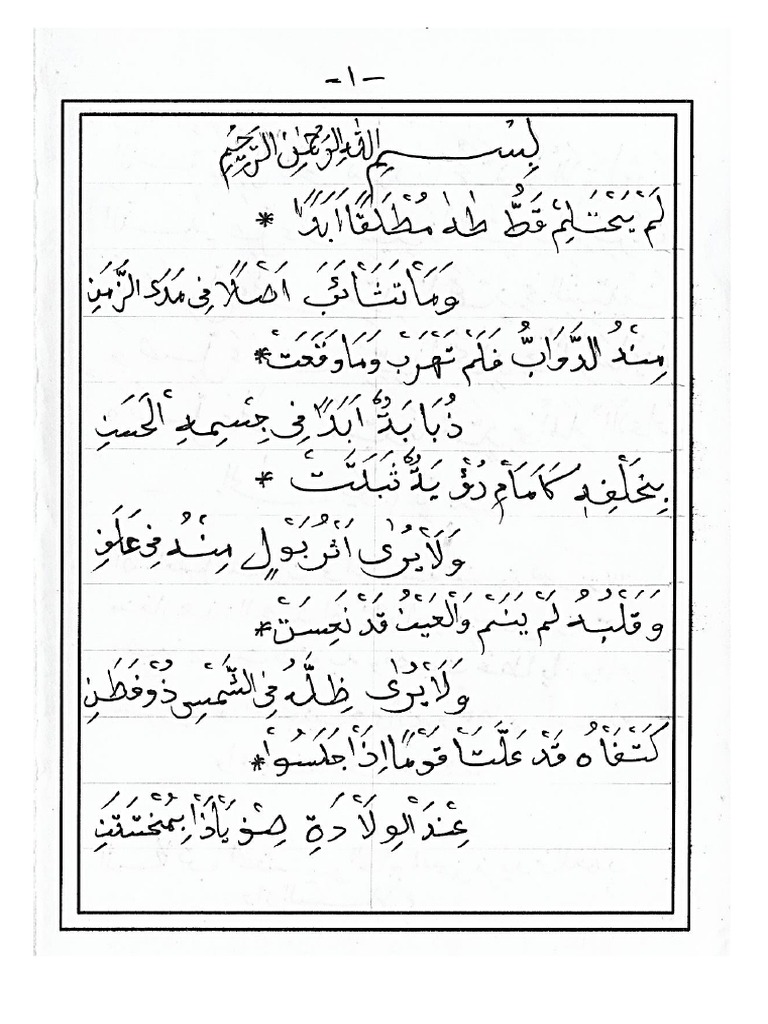 -١-
بِسْــــمِ اللهِ الرَّحْمٰنِ الرَّحِيْمِ
لَمْ يَحْتَلِمْ قَطُّ طٰهٰ مُطْلَقًا اَبَدًا *
وَمَا تَثَائَبَ اَصْلًا فِى مَدَى الزَّمَنِ
مِنْهُ الدَّوَابُّ فَلَمْ تَهْرَبْ وَمَا وَقَعَتْ *
ذُبَابَةٌ اَبَدًا فِى جِسْمِهِ الْحَسَنِ
بِخَلْفِهِ كَاَمَامٍ رُؤْيَةٌ ثَبَتَتْ *
وَلَا يُرٰى اَثْرُ بَوْلٍ مِنْهُ فِى عَلَنِ
وَقَلْبُهُ لَمْ يَنَمْ وَالْعَيْنُ قَدْ نَعِسَتْ *
وَلَا يُرٰى ظِلُّهُ فِى الشَّمْسِ ذُوْ فَطَنِ
كَتْفَاهُ قَدْ عَلَتَا قَوْمًا اِذَا جَلَسُوْا *
عِنْدَ الْوِلَادَةِ صِفْ يَاذَا بِمُخْتَتَنِ